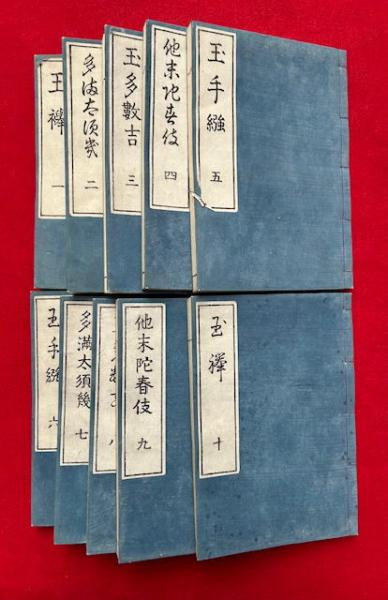 玉襷 一
多満太須幾 二
玉多數吉 三
他末陀春伎 四
玉手繦 五
玉手繦 六
多満太須幾 七
八
他末陀春伎 九
玉襷 十